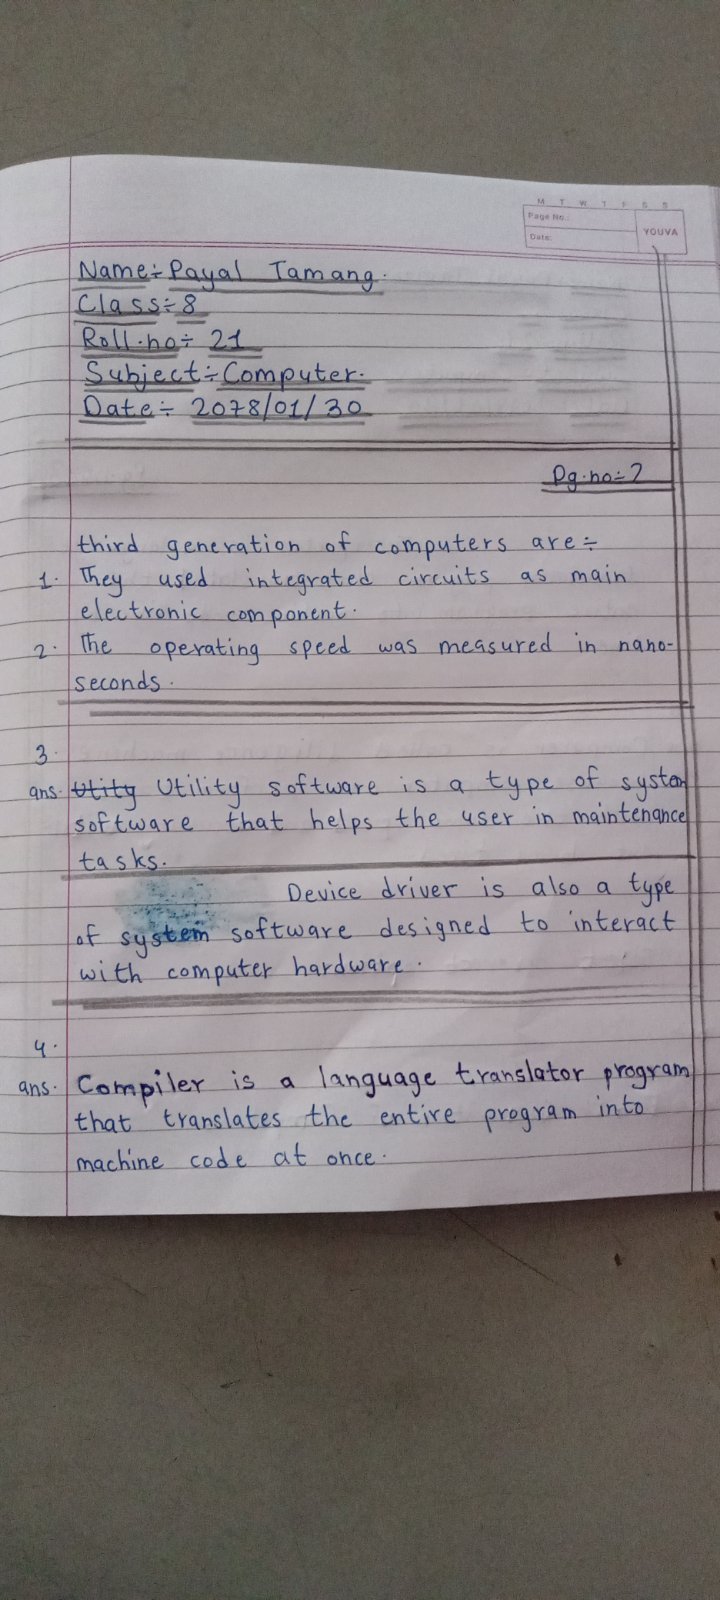 M T W T F S S
Page No.:
Date:
YOUVA
Name÷ Payal Tamang.
Class÷ 8
Roll.no÷ 21
Subject÷ Computer.
Date÷ 2078/01/30
Pg.no÷2
third generation of computers are÷
1. They used integrated circuits as main
electronic component.
2. The operating speed was measured in nano-
seconds.
3.
ans. Utity Utility software is a type of system
software that helps the user in maintenance
tasks.
Device driver is also a type
of system software designed to interact
with computer hardware.
4.
ans. Compiler is a language translator program
that translates the entire program into
machine code at once.